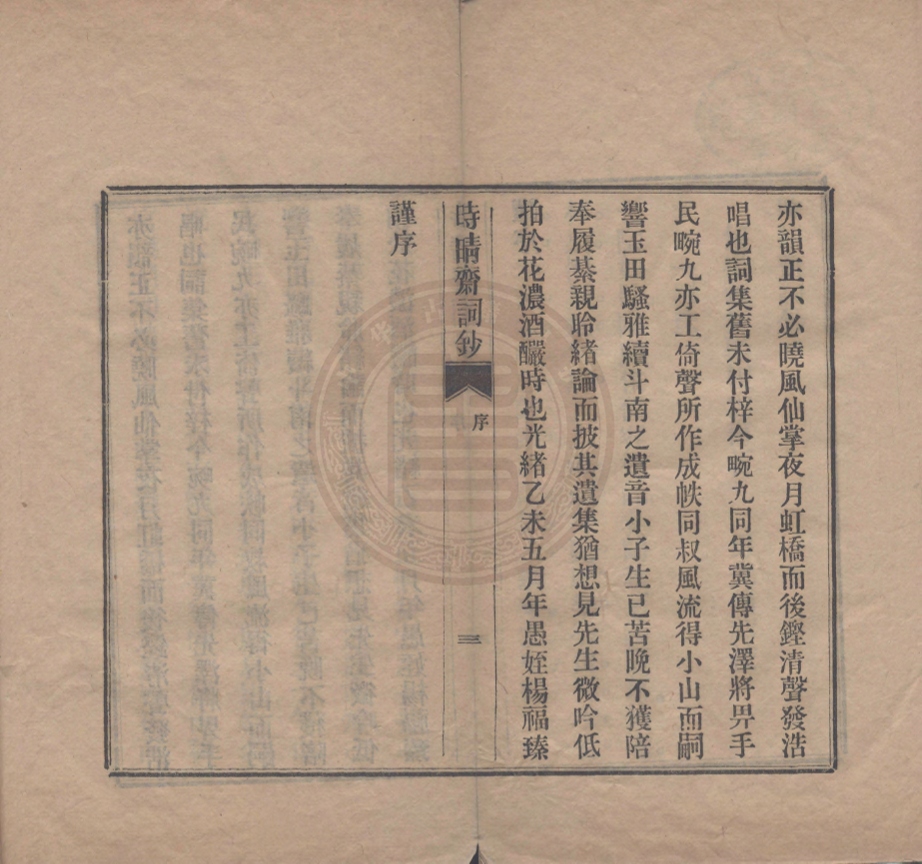 亦韻正不必曉風仙掌夜月虹橋而後鏗清聲發浩
唱也詞集舊未付梓今畹九同年冀傳先澤將畀手
民畹九亦工倚聲所作成帙同叔風流得小山而嗣
響玉田騷雅續斗南之遺音小子生已苦晚不獲陪
奉履綦親聆緒論而披其遺集猶想見先生微吟低
拍於花濃酒釅時也光緒乙未五月年愚姪楊福臻
謹序
時晴齋詞鈔
序
二